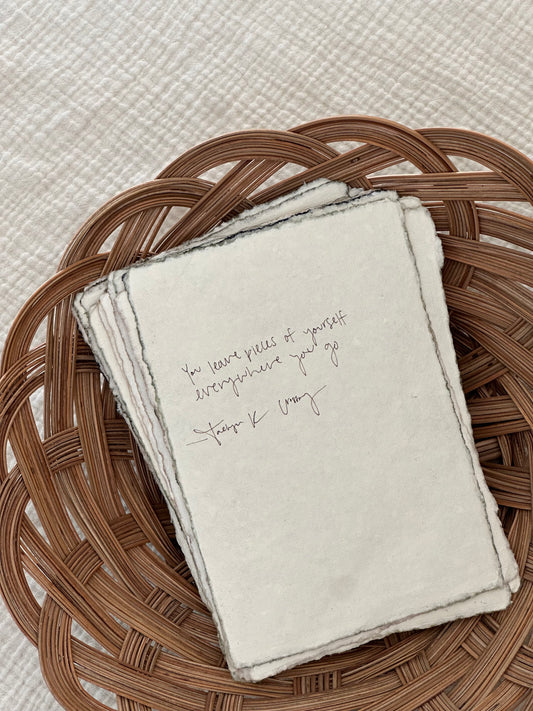 You leave pieces of yourself
everywhere you go
K